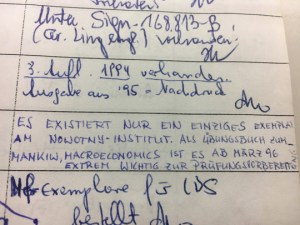 Unter Sign. 168.813-B
vorhanden.
3. Aufl. 1994 vorhanden
Ausgabe aus '95 = Nachdruck
ES EXISTIERT NUR EIN EINZIGES EXEMPLAR
AM NOWOTNY-INSTITUT. ALS ÜBUNGSBUCH ZUM
MANKIW, MACROECONOMICS IST ES AB MÄRZ 96
EXTREM WICHTIG ZUR PRÜFUNGSVORBEREITG
Exemplare f. LBS
bestellt